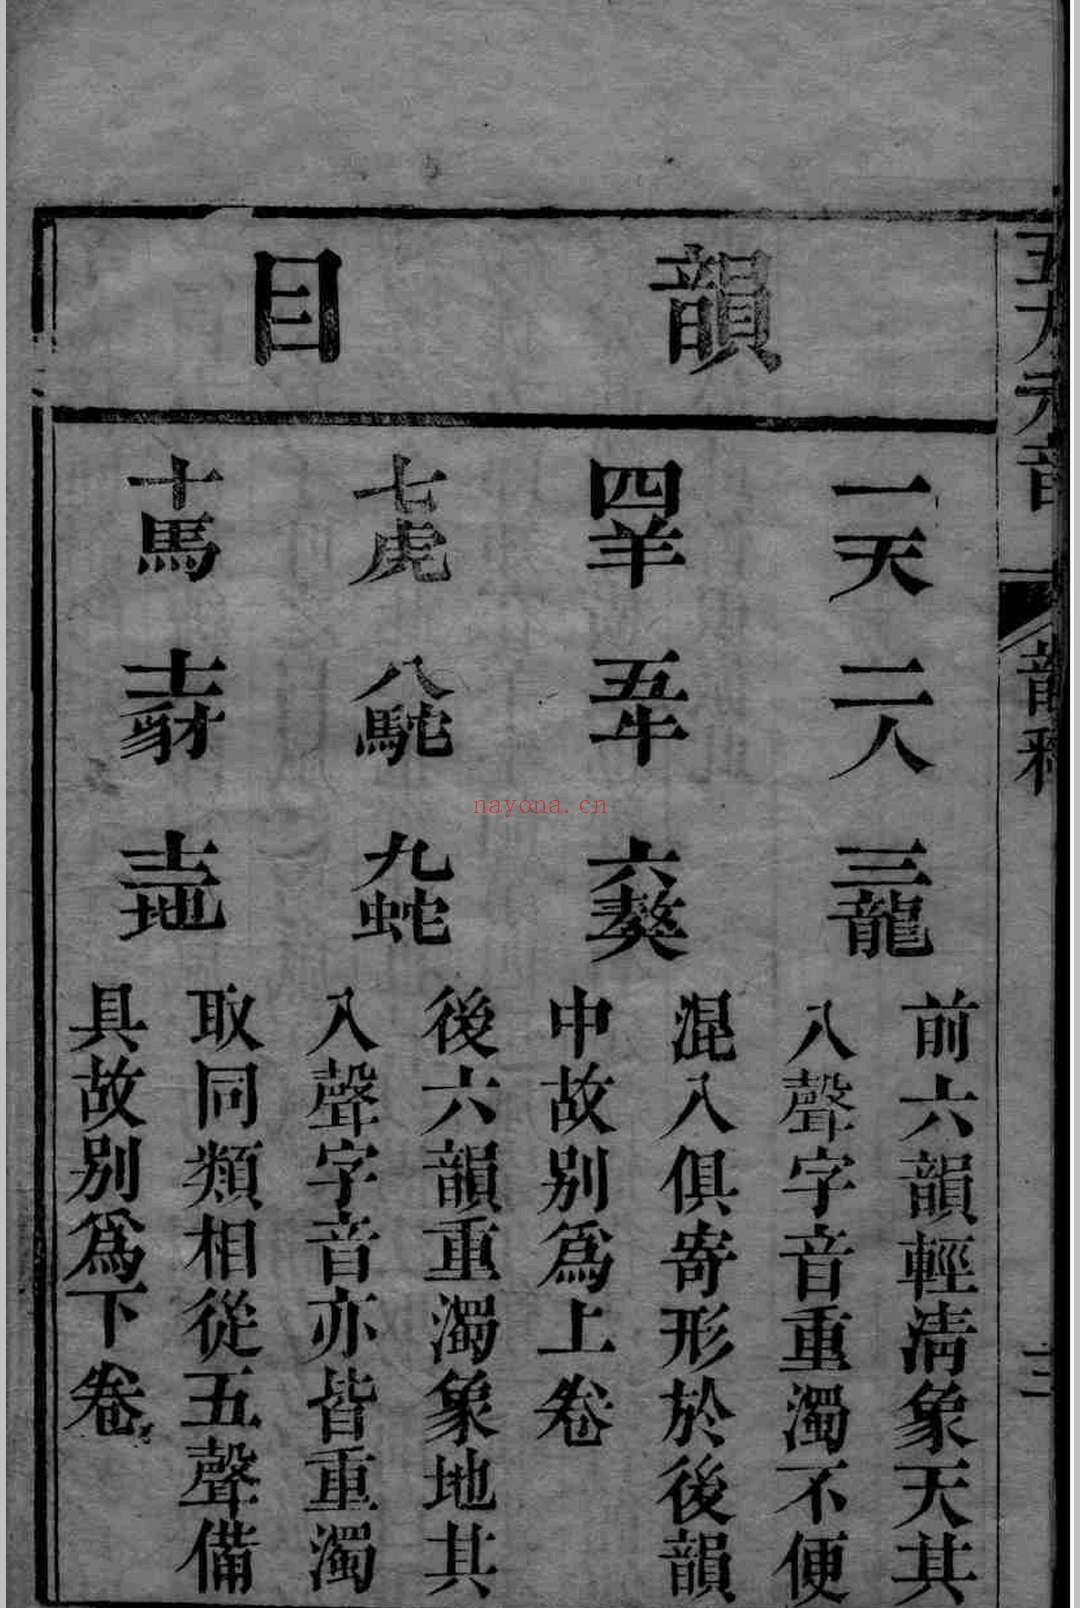 五方元音
韻目
一天 二人 三龍
前六韻輕清象天其
入聲字音重濁不便
四羊 五牛 六獒
混入俱寄形於後韻
中故別爲上卷
七虎 八駝 九蛇
後六韻重濁象地其
入聲字音亦皆重濁
十馬 十一豺 十二地
取同類相從五聲備
具故別爲下卷
nayona.cn